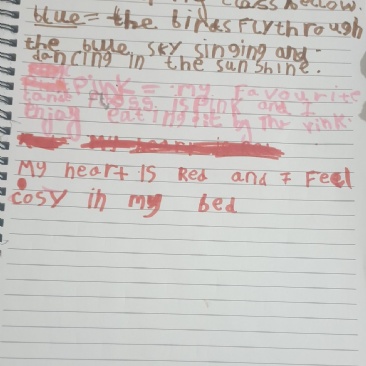 class bellow.
blue = the birds fly through
the blue sky singing and
dancing in the sunshine.
Pink = my favourite
Floss is Pink and I
Enjoy eating it by the rink.
My heart is Red and I Feel
cosy in my bed